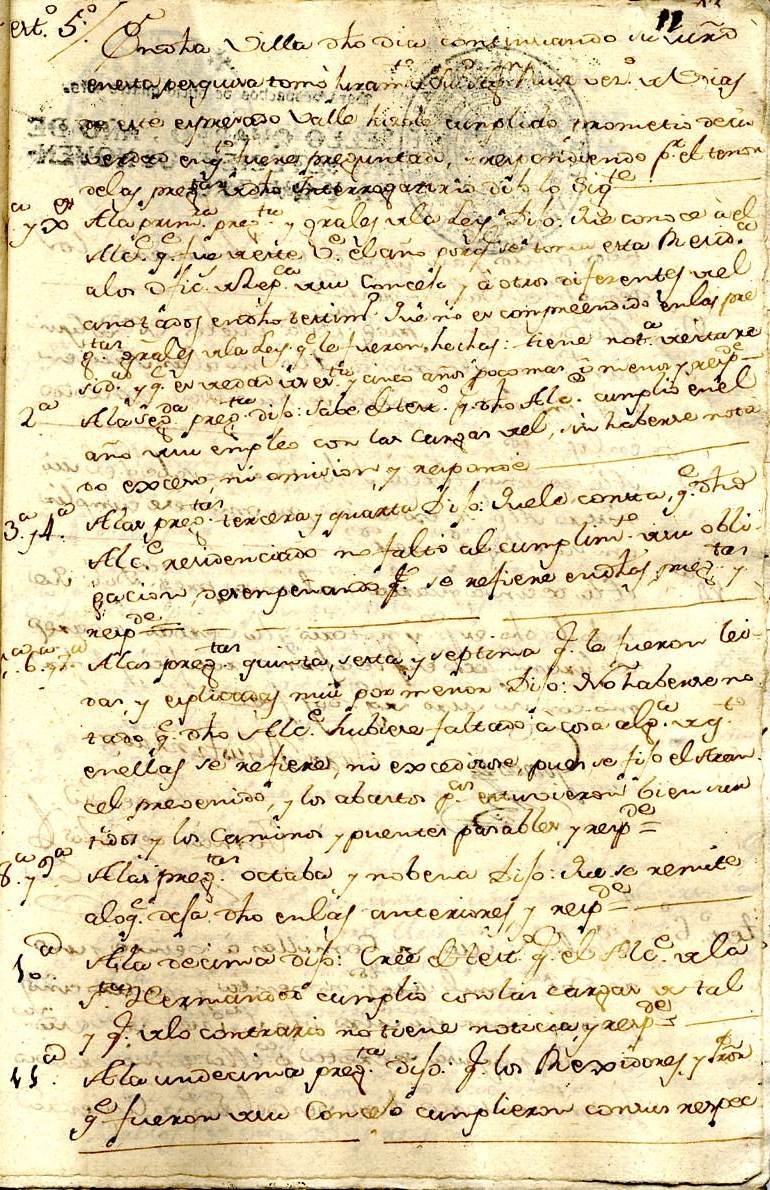 11
ert.º 5.º
En dha Villa dho dia continuando su mrd
en esta pesquisa tomò juram.to
de este expresado Valle hizole cumplido prometio decir
verdad en q.to fuere preguntado, y respondiendo p.r el tenor
delas preg.tas dho Interrogatorio dijo lo Sig.te
A la prim.ra preg.ta y grãles dela Ley Dijo: Que conoce à el
Alc.e q.e fue de este V.e el año porq.e se toma esta Resid.ca
a los Ofic.s de Rep.ca de su Concejo y à otros diferentes del
anotados en dho testim.º Que no es compreendido en las pre
g.tas grãles dela Ley q.e le fueron hechas: tiene not.a de esta re
sid.a y q.e es de edad de y cinco años poco mas ò menos y resp.de
2.a A la seg.da preg.ta dijo: sabe el test.º q.e dho Alc.e cumplio en el
año de su empleo con las cargas del, sin haberse nota
do exceso ni omision y responde
3.a y 4.a A las preg.tas tercera y quarta Dijo: Que le consta, q.e dho
Alc.e residenciado no faltò al cumplim.to de su obli-
gacion desempeñando q.e se refiere en dhas preg.tas y
resp.de
6.a 7.a A las preg.tas quinta, sexta y septima q.e le fueron lei-
das, y explicadas mui por menor Dijo: No haberse no-
tado q.e dho Alc.e hubiese faltado à cosa alg.a de q.to
en ellas se refiere, ni excedidose, pues se fijo el Aran-
cel prevenido, y los abastos p.cos estuvieron bien sur
tidos y los Caminos y puentes pasables y resp.de
8.a y 9.a A las preg.tas octaba y nobena Dijo: Que se remite
alo q.e deja dho en las anteriores y resp.de
10.a A la decima dijo: Cree el test.º q.e el Alc.e de la
S.ta Hermandad cumplio con las cargas de tal
y q.e de lo contrario no tiene noticia y resp.de
11.a A la undecima preg.ta dijo: q.e los Rexidores, y Pror
q.e fueron de su Concejo cumplieron con sus respec